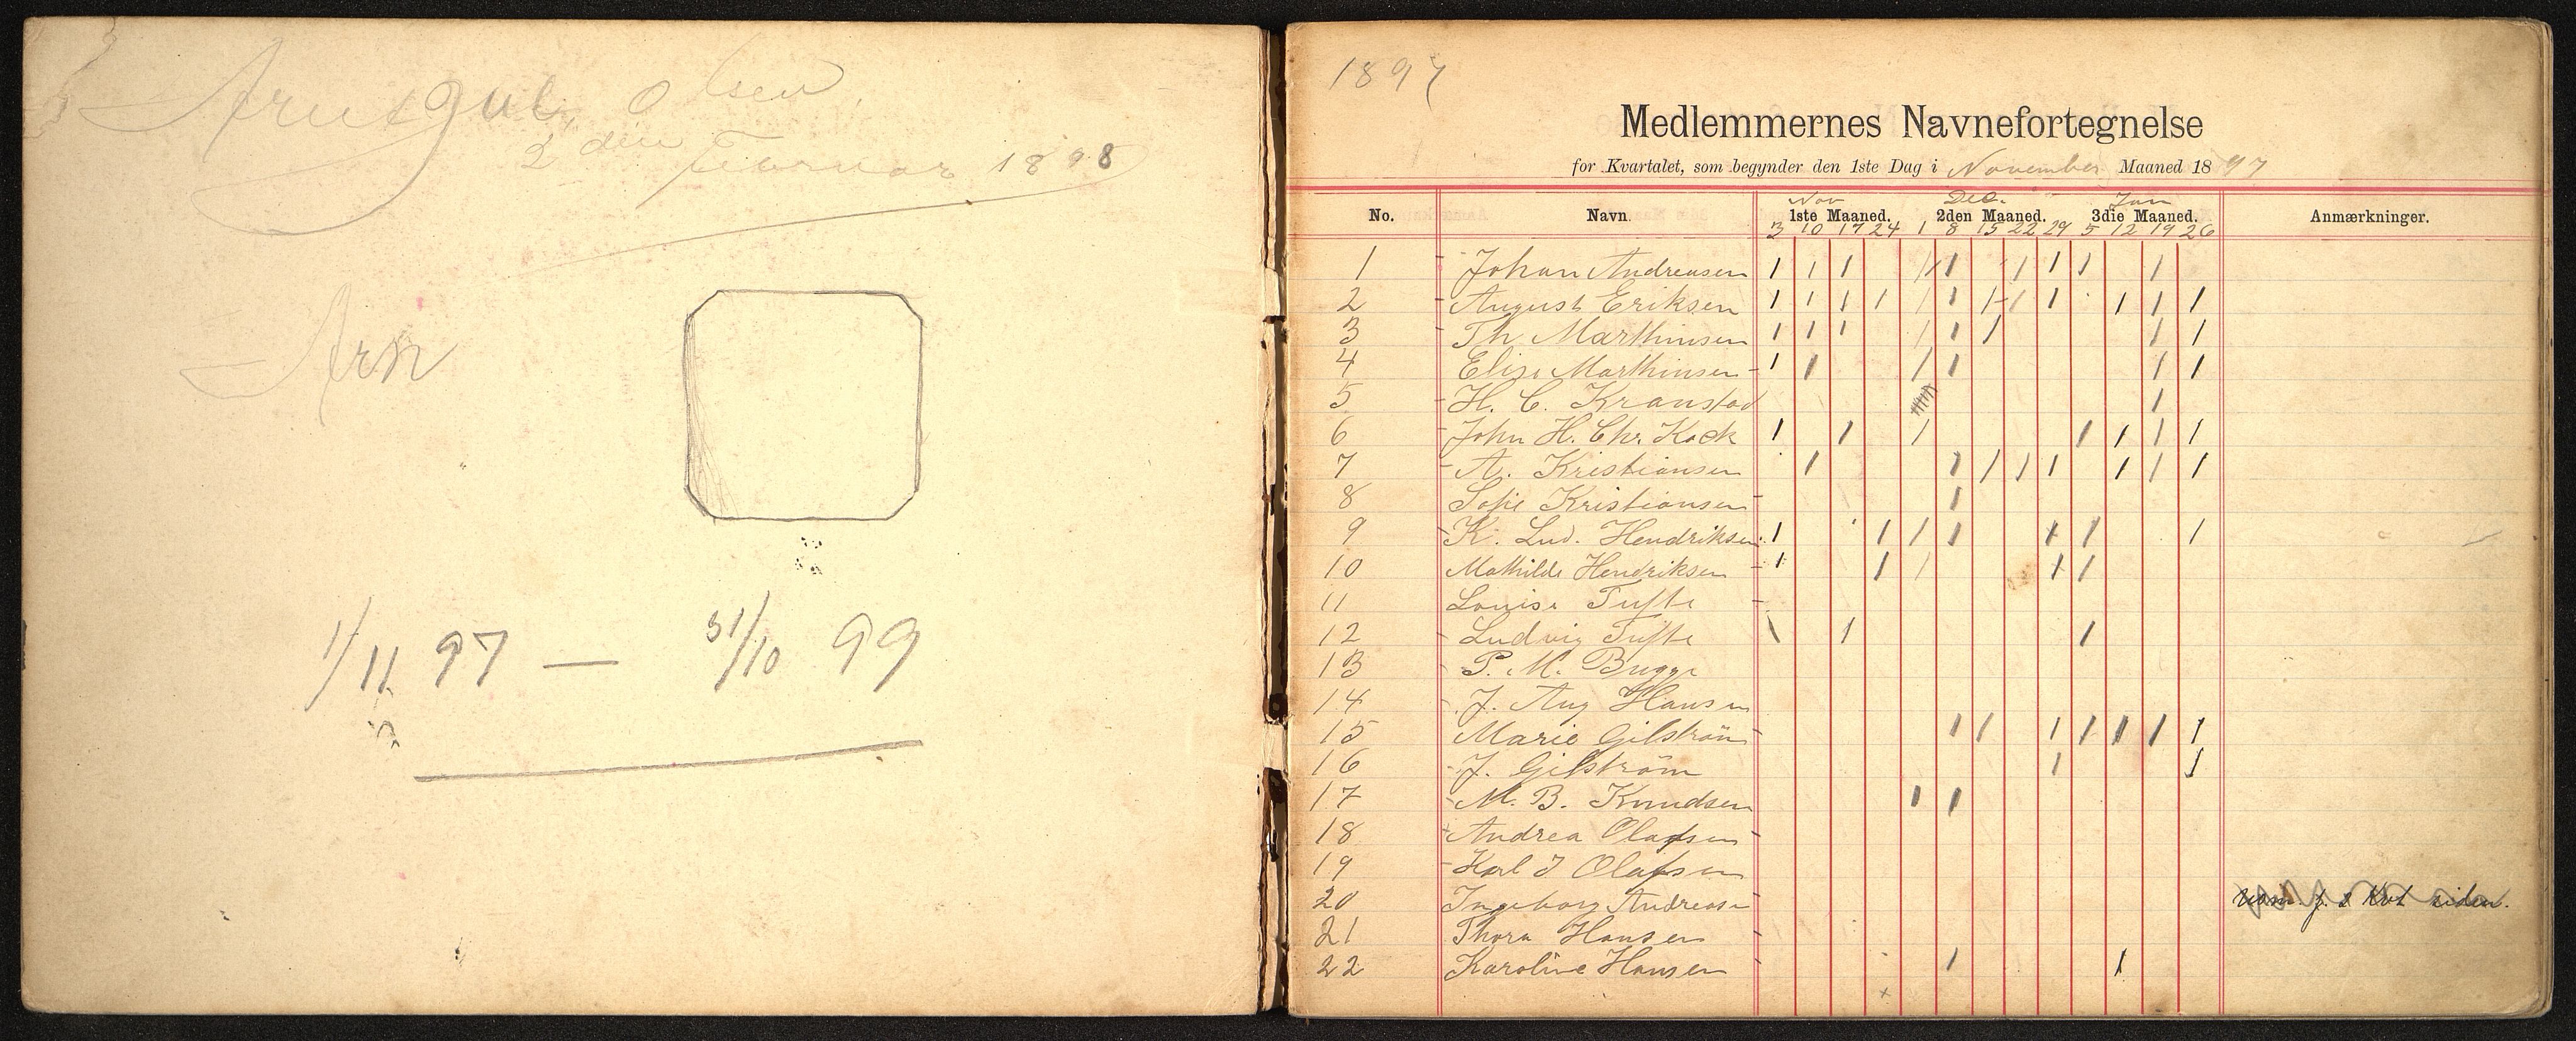 Olsen
2den Februar 1898
Arn
1/11 97 — 31/10 99
1897
Medlemmernes Navnefortegnelse
for Kvartalet, som begynder den 1ste Dag i November Maaned 1897
Nov Dec. Jan
No. Navn. 1ste Maaned. 2den Maaned. 3die Maaned. Anmærkninger.
3 10 17 24 1 8 15 22 29 5 12 19 26
1 - Johan Andreasen 1 1 1 1 1 1 1 1 1
2 - August Eriksen 1 1 1 1 1 1 1 1 1 1 1 1
3 - Th Marthinsen 1 1 1 1 1 1 1 1
4 - Elise Marthinsen - 1 1 1 1 1 1
5 - H. C. Kranstad 1
6 - John H. Chr. Kock 1 1 1 1 1 1 1
7 - A. Kristiansen 1 1 1 1 1 1 1 1
8 Sofie Kristiansen - 1
9 - K. Lud. Hendriksen 1 1 1 1 1 1 1
10 Mathilde Hendriksen - 1 1 1 1 1
11 Louise Tufte -
12 - Ludvig Tufte 1 1 1
13 - P. M. Bugge
14 - J. Aug Hansen
15 Marie Gilström - 1 1 1 1 1 1 1
16 - J. Gilström 1 1
17 - M. B. Knudsen 1 1
18 Andrea Olafsen -
19 - Karl J Olafsen
20 Ingeborg Andreasen - f. 2 Kvt siden.
21 Thora Hansen -
22 Karoline Hansen - 1 1
x